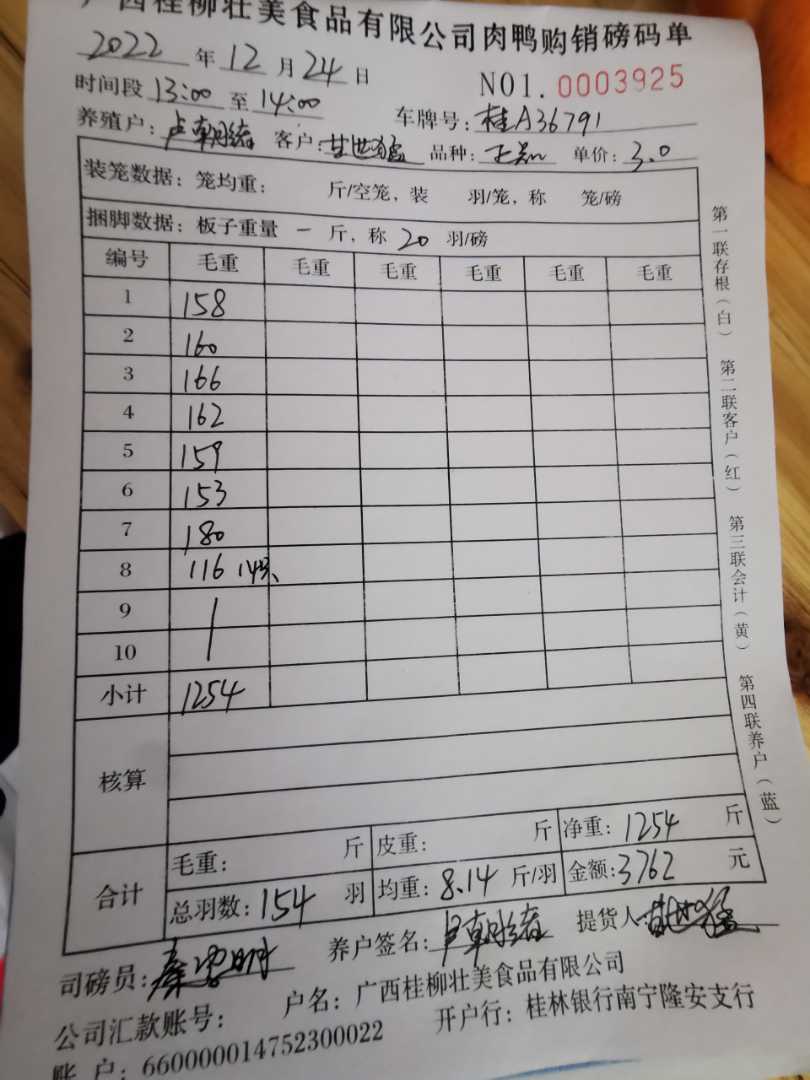 广西桂柳壮美食品有限公司肉鸭购销磅码单
2022 年 12 月 24 日 NO1. 0003925
时间段 13:00 至 14:00 车牌号: 桂A36791
养殖户: 卢朝 客户: 甘世猛 品种: 单价: 3.0
装笼数据: 笼均重: 斤/空笼, 装 羽/笼, 称 笼/磅
捆脚数据: 板子重量 一 斤, 称 20 羽/磅
编号 毛重 毛重 毛重 毛重 毛重 毛重
1 158
2 160
3 166
4 162
5 159
6 153
7 180
8 116 14只
9
10
小计 1254
核算
合计 毛重: 斤 皮重: 斤 净重: 1254 斤
总羽数: 154 羽 均重: 8.14 斤/羽 金额: 3762 元
司磅员: 秦 养户签名: 卢朝 提货人: 甘世猛
公司汇款账号: 户名: 广西桂柳壮美食品有限公司
账户: 660000014752300022 开户行: 桂林银行南宁隆安支行
第一联存根(白) 第二联客户(红) 第三联会计(黄) 第四联养户(蓝)